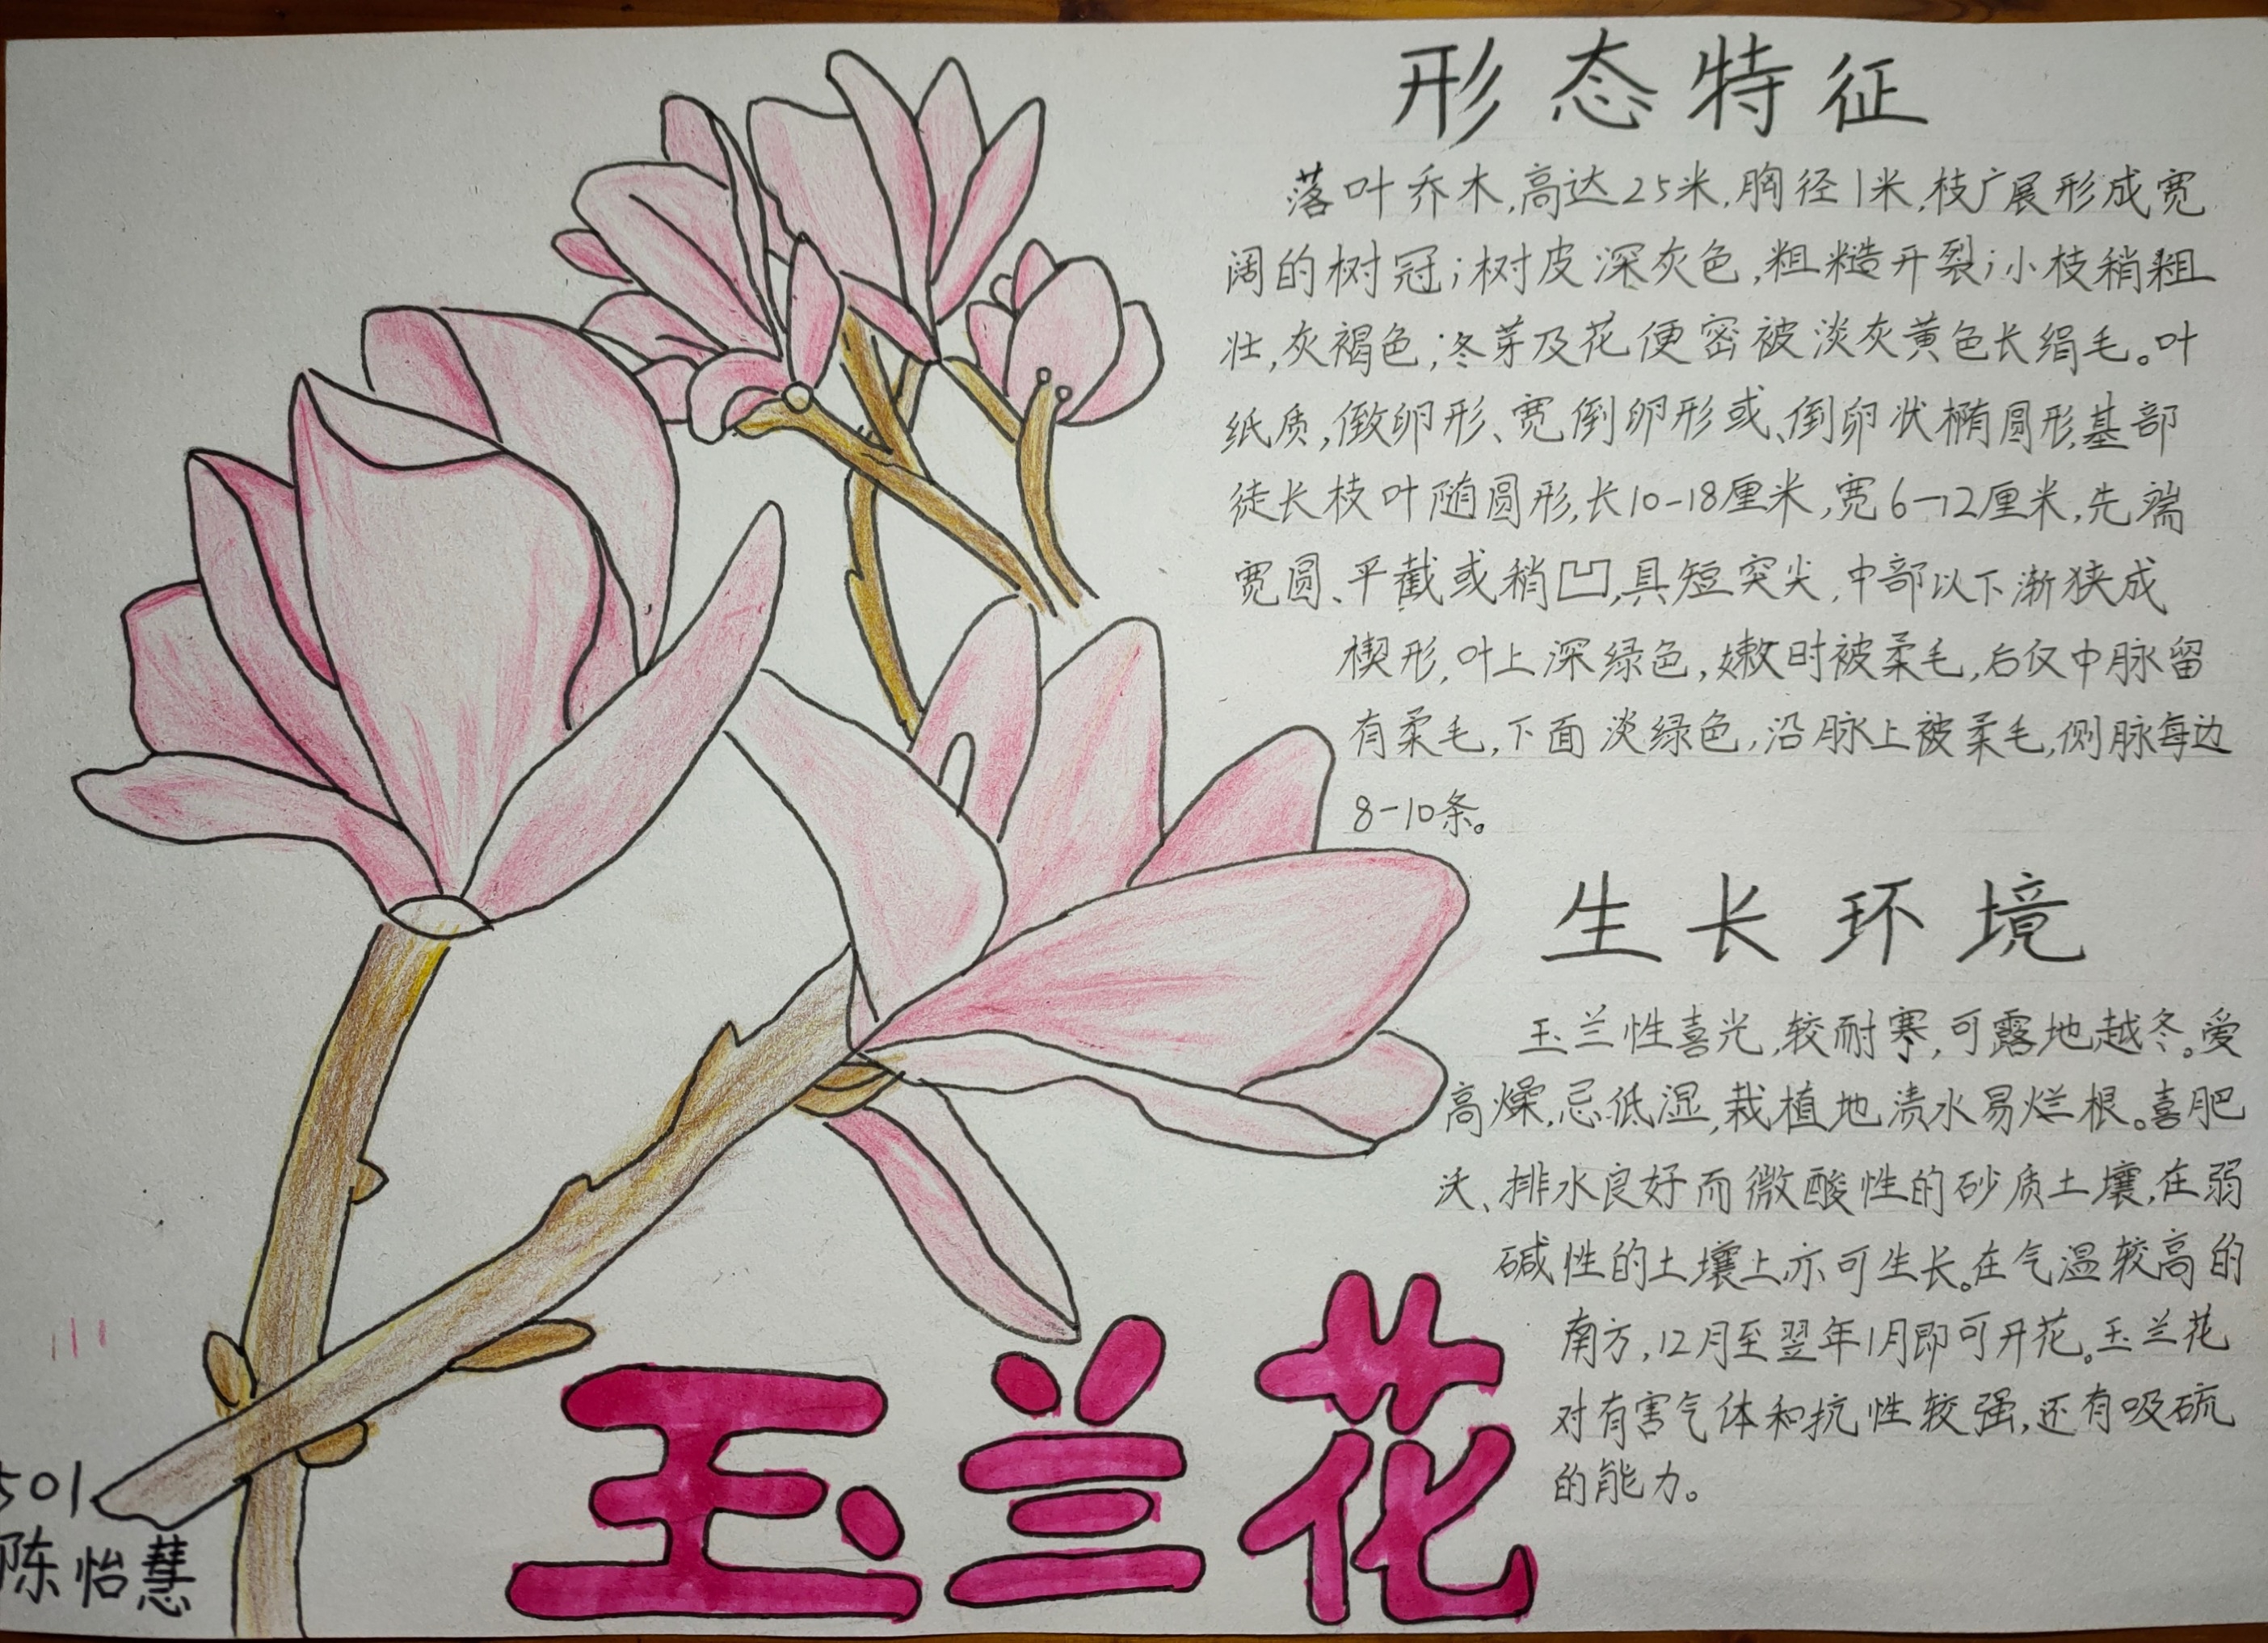 形态特征
落叶乔木,高达25米,胸径1米,枝广展形成宽
阔的树冠;树皮深灰色,粗糙开裂;小枝稍粗
壮,灰褐色;冬芽及花便密被淡灰黄色长绢毛。叶
纸质,倒卵形、宽倒卵形或、倒卵状椭圆形,基部
徒长枝叶随圆形,长10-18厘米,宽6-12厘米,先端
宽圆、平截或稍凹,具短突尖,中部以下渐狭成
楔形,叶上深绿色,嫩时被柔毛,后仅中脉留
有柔毛,下面淡绿色,沿脉上被柔毛,侧脉每边
8-10条。
生长环境
玉兰性喜光,较耐寒,可露地越冬。爱
高燥,忌低湿,栽植地渍水易烂根。喜肥
沃、排水良好而微酸性的砂质土壤,在弱
碱性的土壤上亦可生长。在气温较高的
南方,12月至翌年1月即可开花。玉兰花
对有害气体和抗性较强,还有吸硫
的能力。
玉兰花
501
陈怡慧